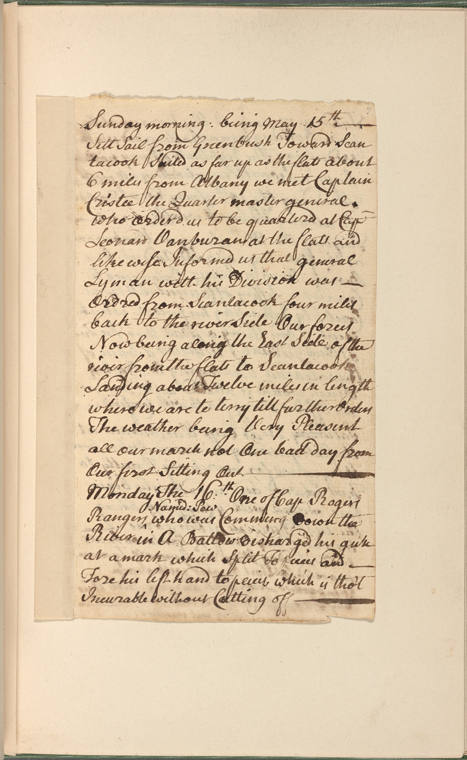 Sunday morning: being May 15th
Sett Sail from Greenbush Toward Scan
tacook Sailed as far up as the flats about
6 miles from Albany we met Captain
Cristee the Quarter master general.
who orderd us to be quarterd at Capt
Leonard Vanburan at the flats and
likewise Informed us that general
Lyman with his Division was
Ordred from Scantacook four miles
back to the river Side Our forces
Now being along the East Side of the
river from the flats to Scantacook
Landing about Twelve miles in length
where we are to terry till further Orders
The weather being Very Pleasent
all our march not One bad day from
Our first Sitting Out
Monday The 16th One of Cap Rogers
Named:
Rangers, who was Comming Down the
River in A Battow Discharged his gun
at a mark which Split To peices and
Tore his left hand to peices which is thot
Incurable without Cutting off